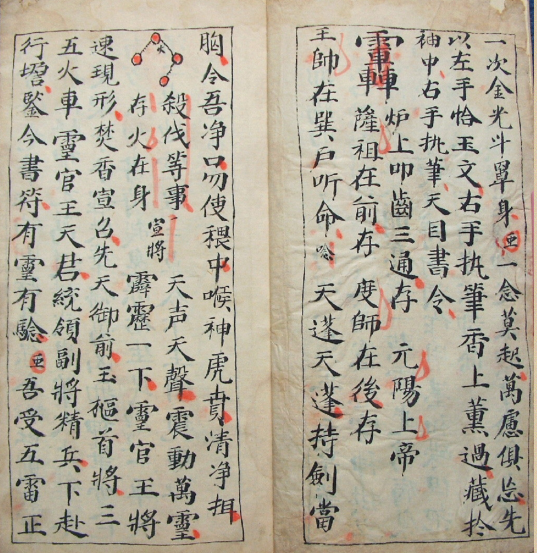 一次金光斗罩身 一念莫起萬慮俱忘先
以左手恰玉文右手执筆香上薰過藏扵
袖中右手执筆天目書令
炉上叩齒三通存 元陽上帝
薩祖在前存 度師在後存
王帥在巽户听命 念 天蓬天蓬持劍當
胸令吾净口勿使穢中喉神虎賁清净拑
火
殺伐等事 天声天聲震動萬靈
存火在身 宣将 霹靂一下靈官王将
速現形焚香宣召先天御前玉樞首将三
五火車 靈官王天君統領副將精兵下赴
行壇鑒今書符有靈有驗 吾受五雷正